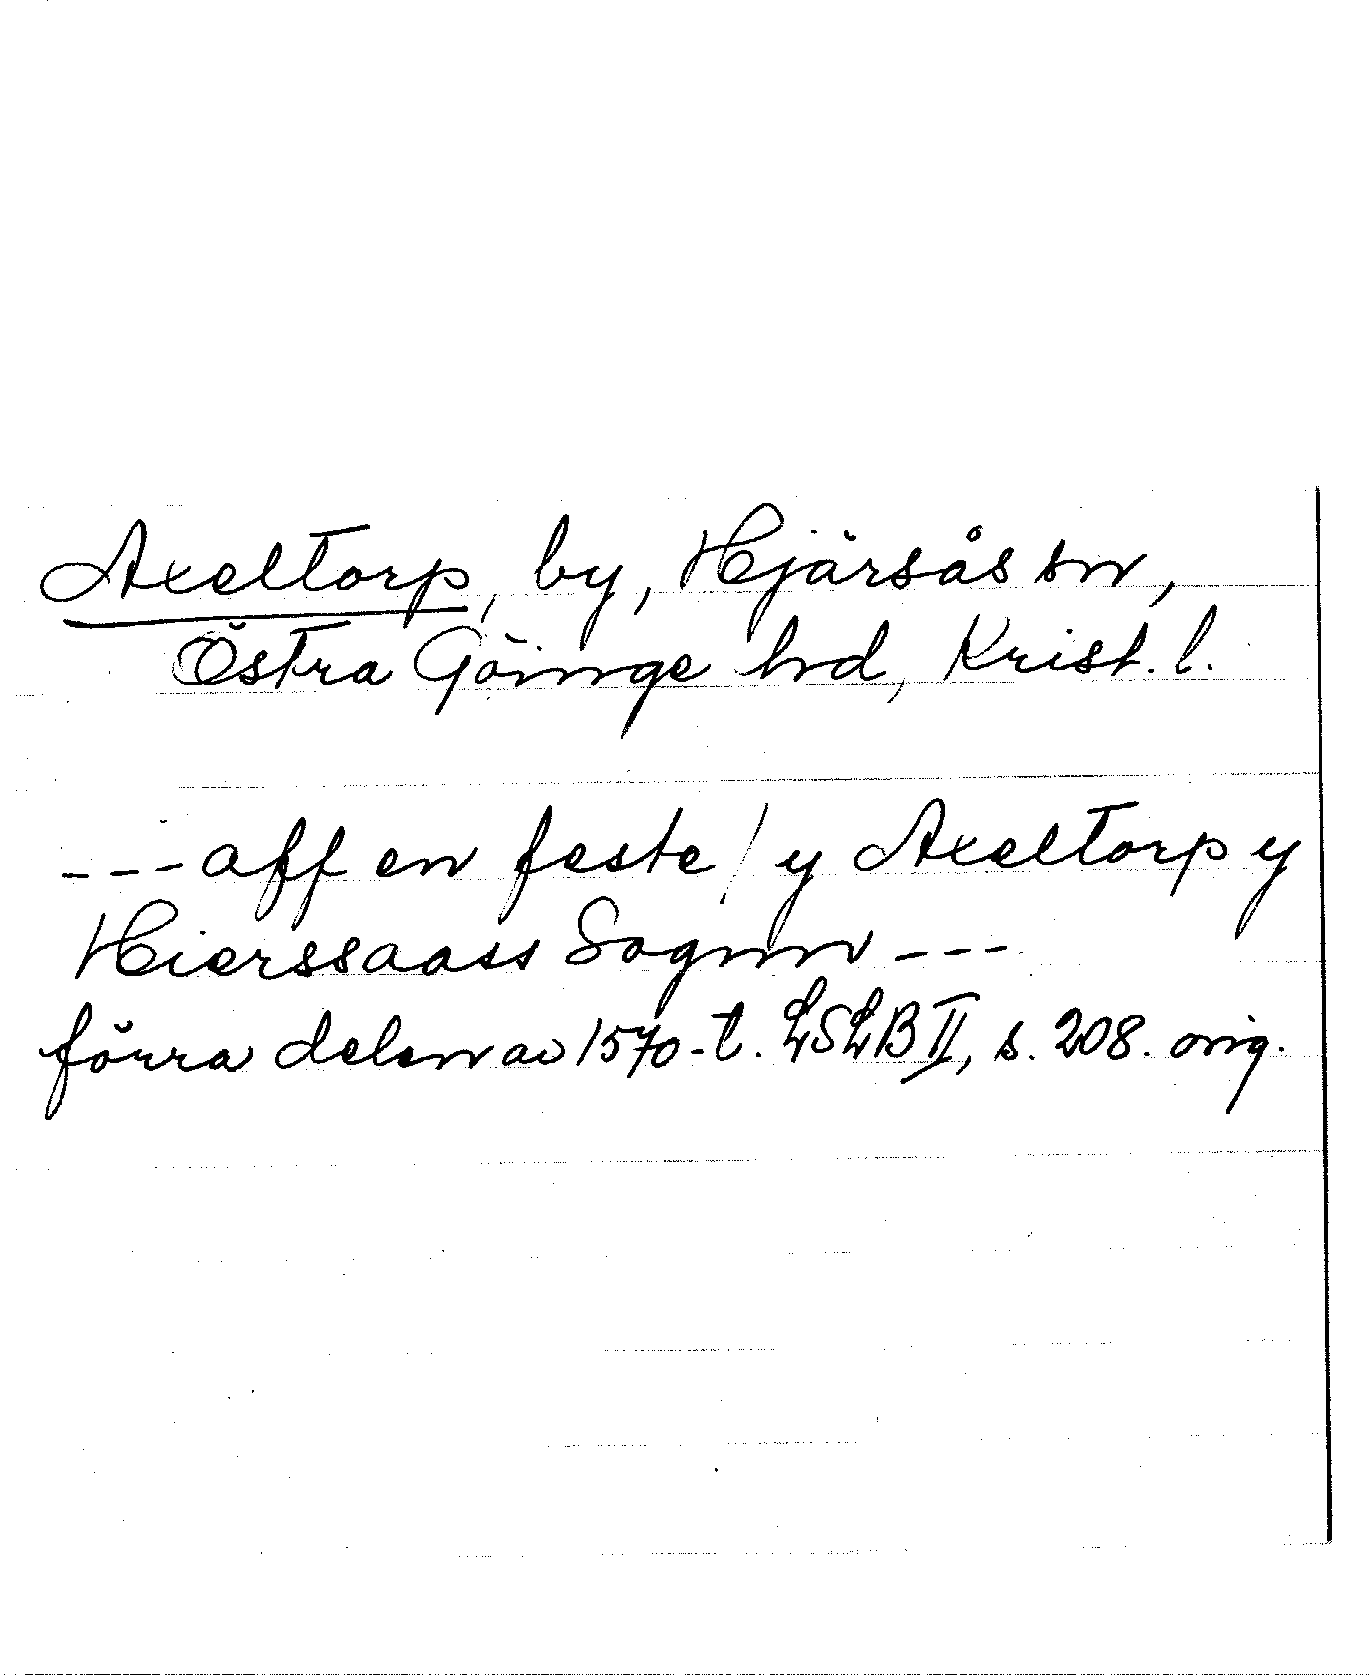 Axeltorp, by, Hjärsås sn,
Östra Göinge hd, Krist. l.
--- aff en feste / y Axeltorp y
Hierssaass Sognn ---
förra delen av 1570-t. LSLB II, s. 208. orig.